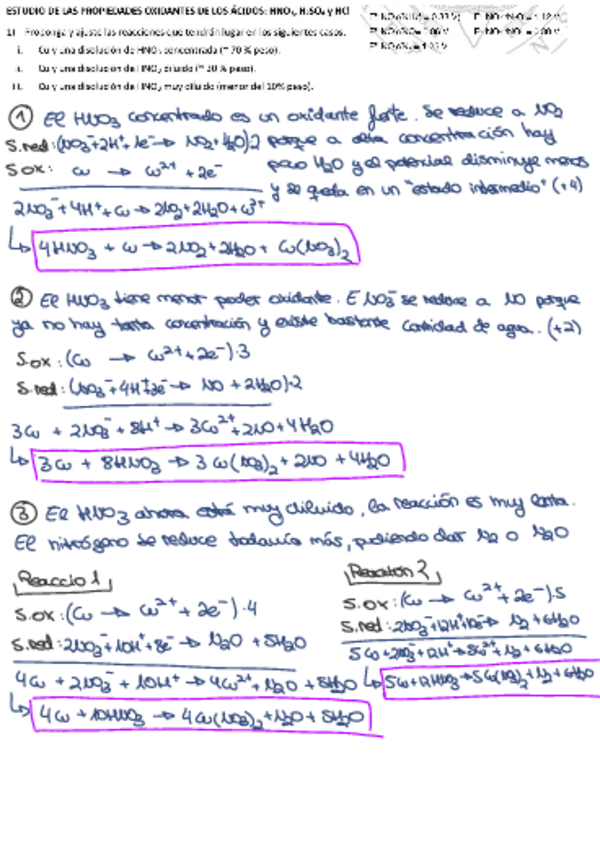 ESTUDIO DE LAS PROPIEDADES OXIDANTES DE LOS ÁCIDOS: HNO₃, H₂SO₄ y HCl
1) Proponga y ajuste las reacciones que tendrán lugar en los siguientes casos.
i. Cu y una disolución de HNO₃ concentrada (≈ 70 % peso).
ii. Cu y una disolución de HNO₃ diluido (≈ 20 % peso).
iii. Cu y una disolución de HNO₃ muy diluido (menor del 10% peso).
① El HNO₃ concentrado es un oxidante fuerte. Se reduce a NO₂
S.red: (NO₃⁻+2H⁺+1e⁻ → NO₂+H₂O)·2 porque a alta concentración hay
S.ox: Cu → Cu²⁺ + 2e⁻ poco H₂O y el potencial disminuye menos
y se queda en un "estado intermedio" (+4)
2NO₃⁻+4H⁺+Cu → 2NO₂+2H₂O+Cu²⁺
↳ 4HNO₃ + Cu → 2NO₂+2H₂O + Cu(NO₃)₂
② El HNO₃ tiene menor poder oxidante. El NO₃⁻ se reduce a NO porque
ya no hay tanta concentración y existe bastante cantidad de agua. (+2)
S.ox: (Cu → Cu²⁺+2e⁻)·3
S.red: (NO₃⁻+4H⁺+3e⁻ → NO + 2H₂O)·2
3Cu + 2NO₃⁻ + 8H⁺ → 3Cu²⁺+2NO+4H₂O
↳ 3Cu + 8HNO₃ → 3Cu(NO₃)₂ + 2NO + 4H₂O
③ El HNO₃ ahora está muy diluido, la reacción es muy lenta.
El nitrógeno se reduce todavía más, pudiendo dar N₂ o N₂O
Reacció 1
S.ox: (Cu → Cu²⁺ + 2e⁻)·4
S.red: 2NO₃⁻+10H⁺+8e⁻ → N₂O + 5H₂O
4Cu + 2NO₃⁻ + 10H⁺ → 4Cu²⁺+N₂O + 5H₂O
↳ 4Cu + 10HNO₃ → 4Cu(NO₃)₂+N₂O + 5H₂O
Reacción 2
S.ox: (Cu → Cu²⁺+2e⁻)·5
S.red: 2NO₃⁻+12H⁺+10e⁻ → N₂+6H₂O
5Cu+2NO₃⁻+12H⁺→5Cu²⁺+N₂+6H₂O
↳ 5Cu+12HNO₃→5Cu(NO₃)₂+N₂+6H₂O